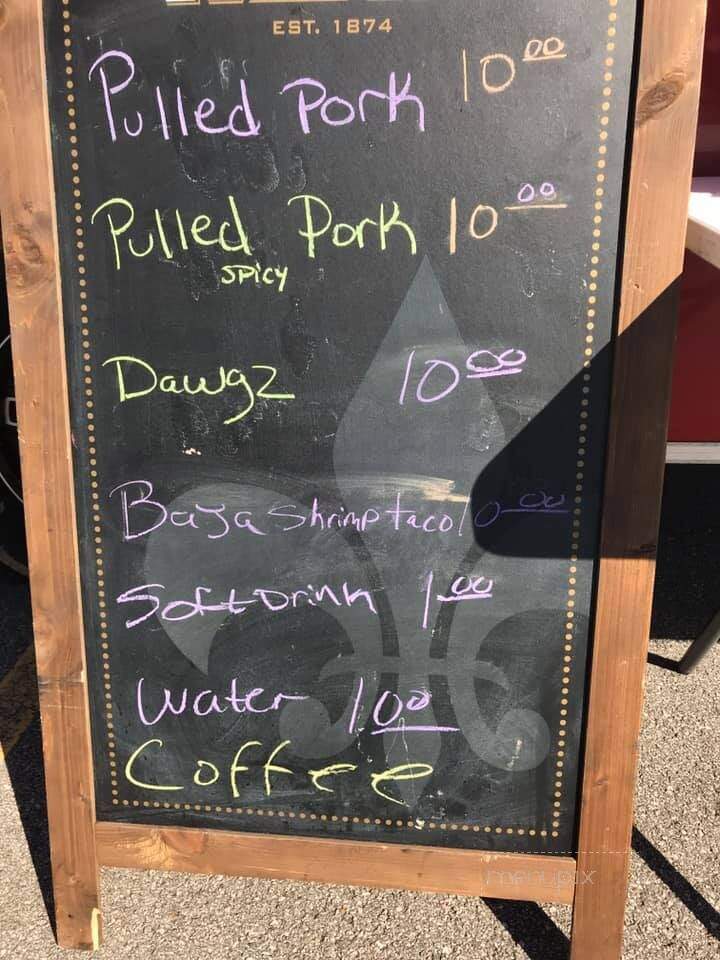 EST. 1874
Pulled Pork 10 00
Pulled Pork 10 00
SPicy
Dawgz 10 00
Baja Shrimp taco 10 00
Soft Drink 1 00
Water 1 00
Coffee
menupix